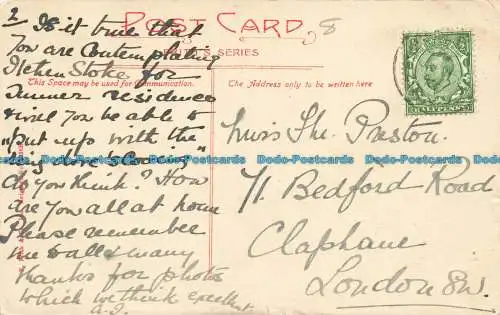 2 Is it true that
you are contemplating
Stoke for
Summer residence
& will you be able to
"put up with the
do you think? How
are you all at home
Please remember
me to all & many
thanks for photos
which we think excellent
POST CARD
SERIES
This Space may be used for Communication.
The Address only to be written here
8
HALFPENNY
Miss Preston
71 Bedford Road
Claphane
London SW.
Dodo-Postcards Dodo-Postcards Dodo-Postcards Dodo-Postcards Dodo-Postcards